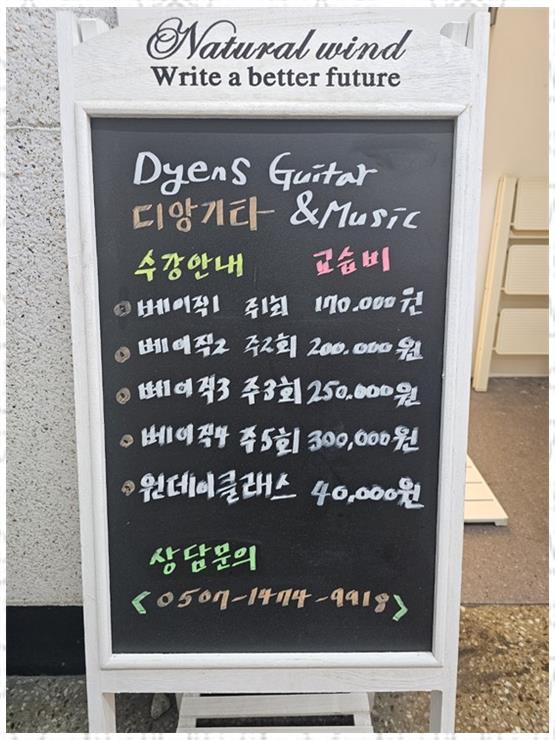 Natural wind
Write a better future
Dyens Guitar
디앙기타 &Music
수강안내 교습비
베이직1 주1회 170.000원
베이직2 주2회 200.000원
베이직3 주3회 250.000원
베이직4 주5회 300,000원
원데이클래스 40,000원
상담문의
<0507-1474-9918>